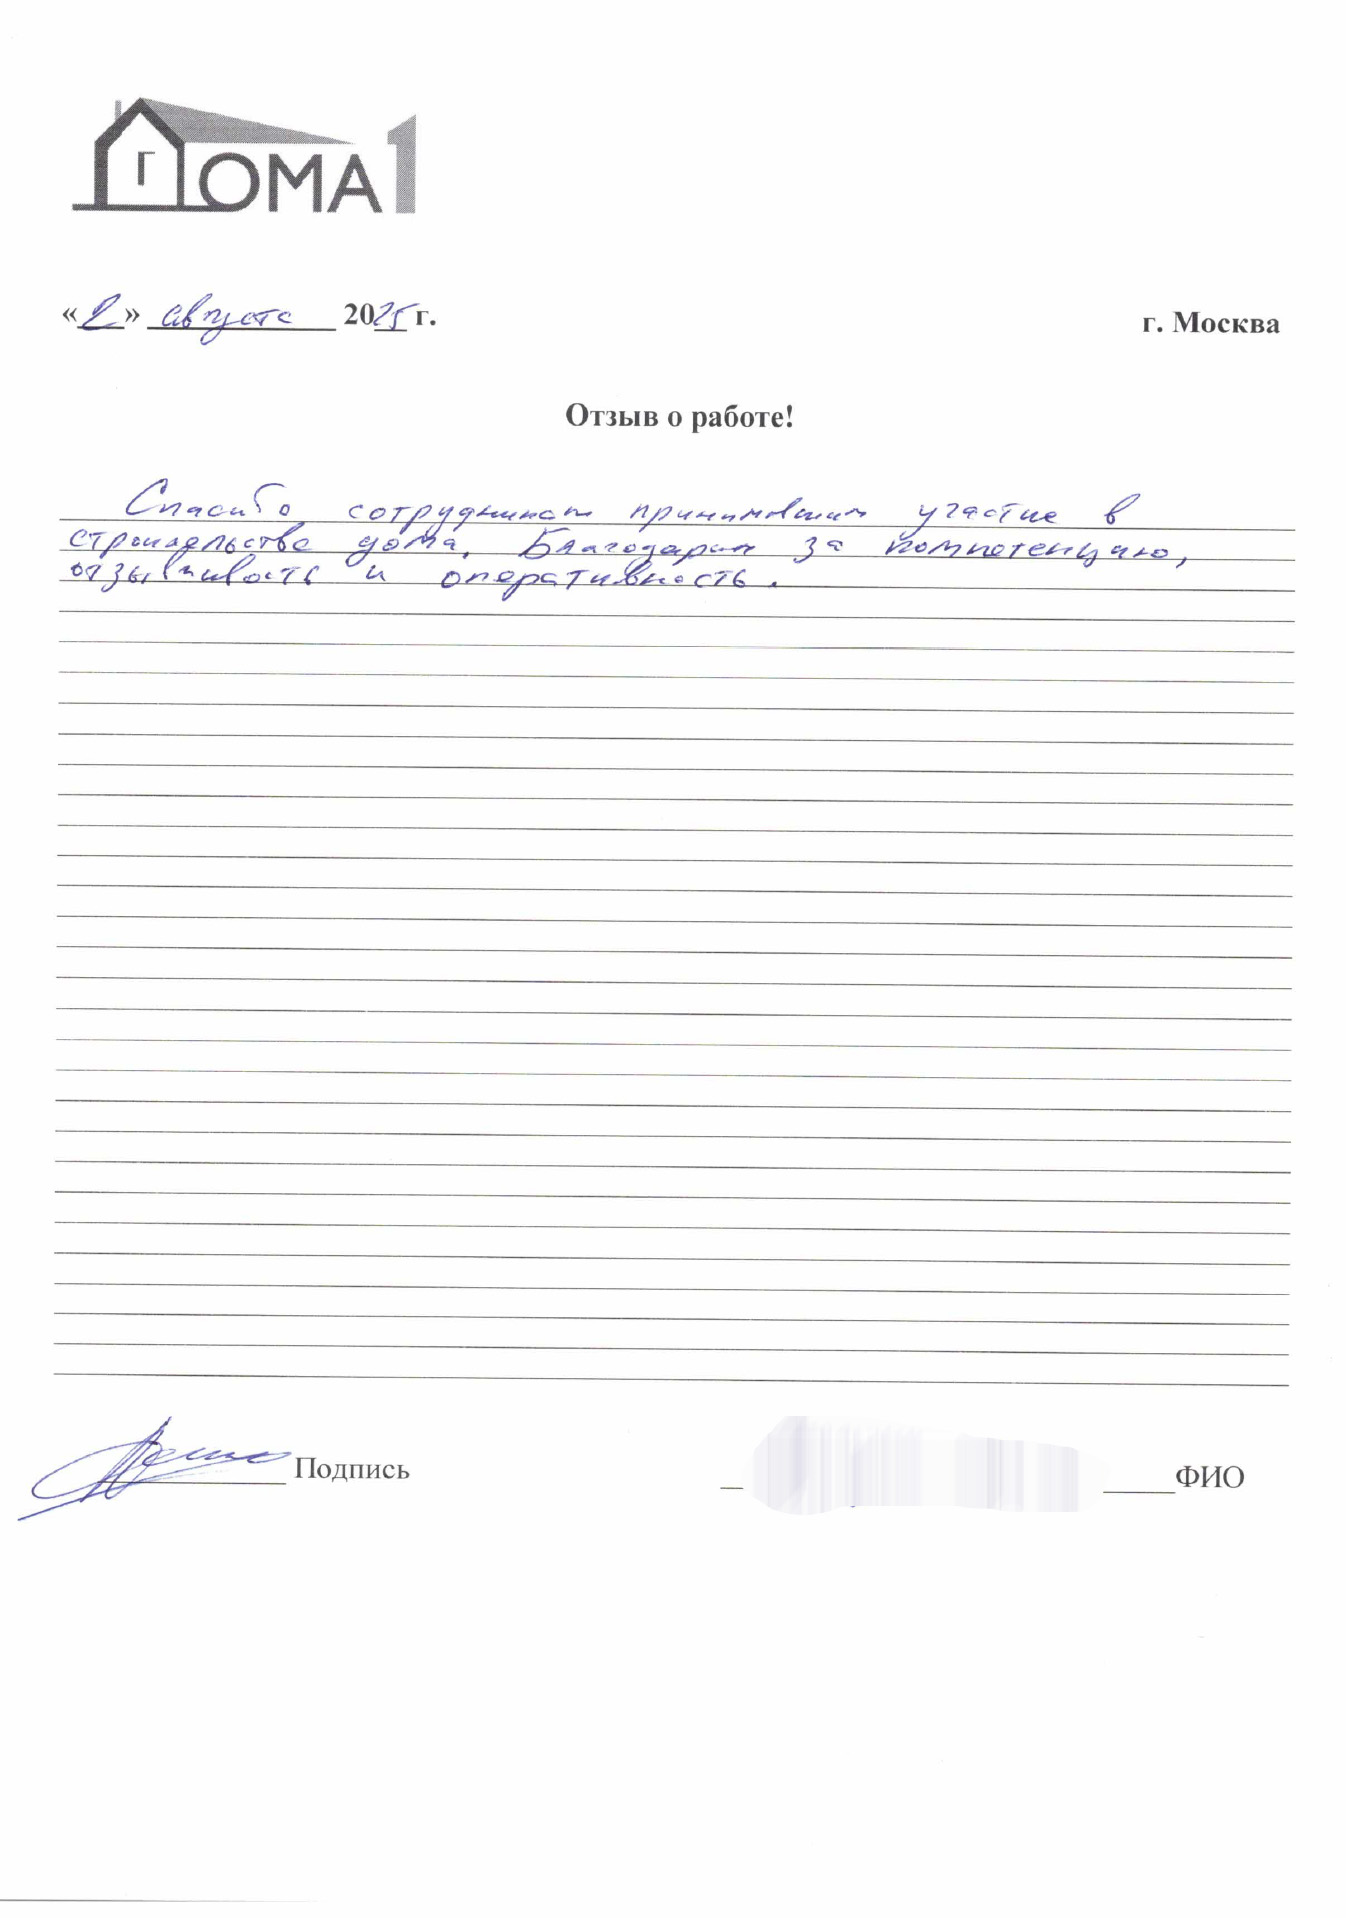 Г ДОМА1
«2» августа 2025 г.
г. Москва
Отзыв о работе!
Спасибо сотрудникам принимавшим участие в
строительстве дома. Благодарим за компотенцию,
отзывчивость и оперативность.
Подпись
ФИО